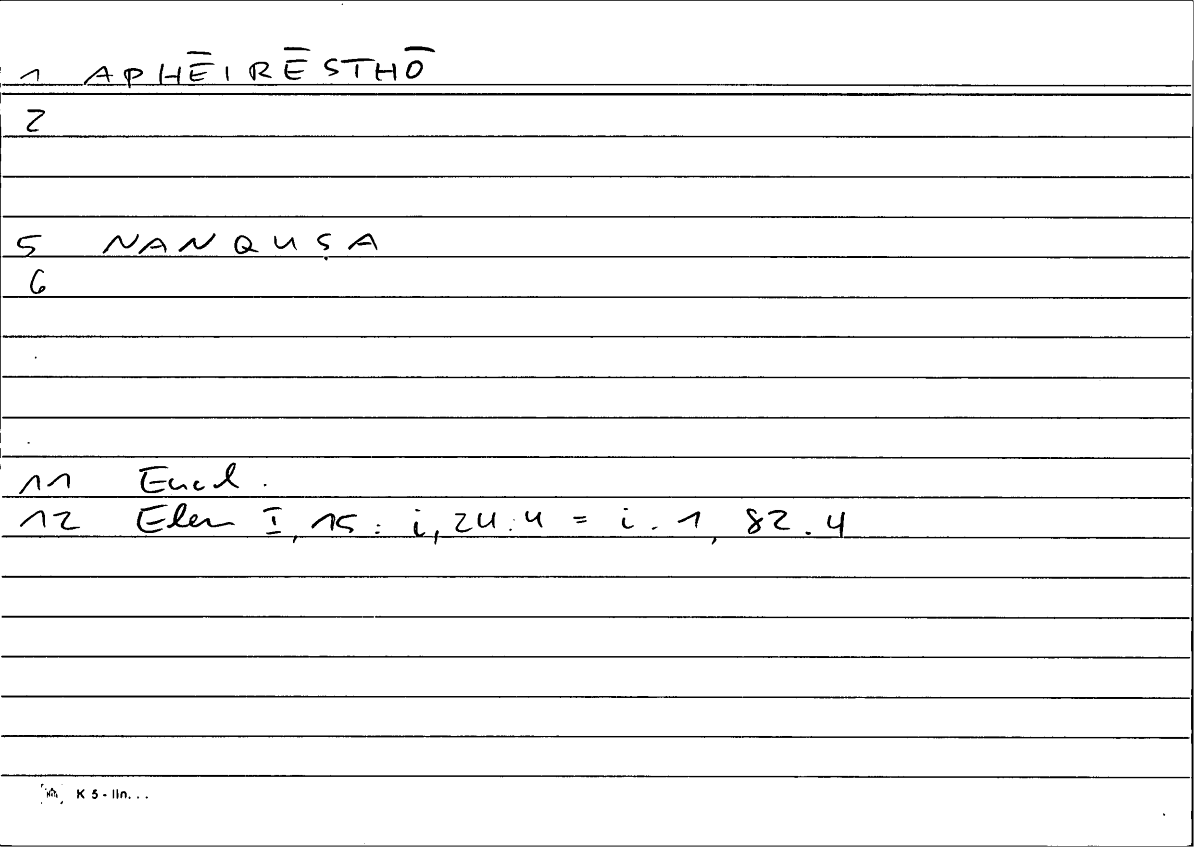 1 APHĒIRĒSTHŌ
2
5 NANQUṢA
6
11 Eucl.
12 Elem I, 15 : i, 24.4 = i.1, 82.4
K 5 - lin...